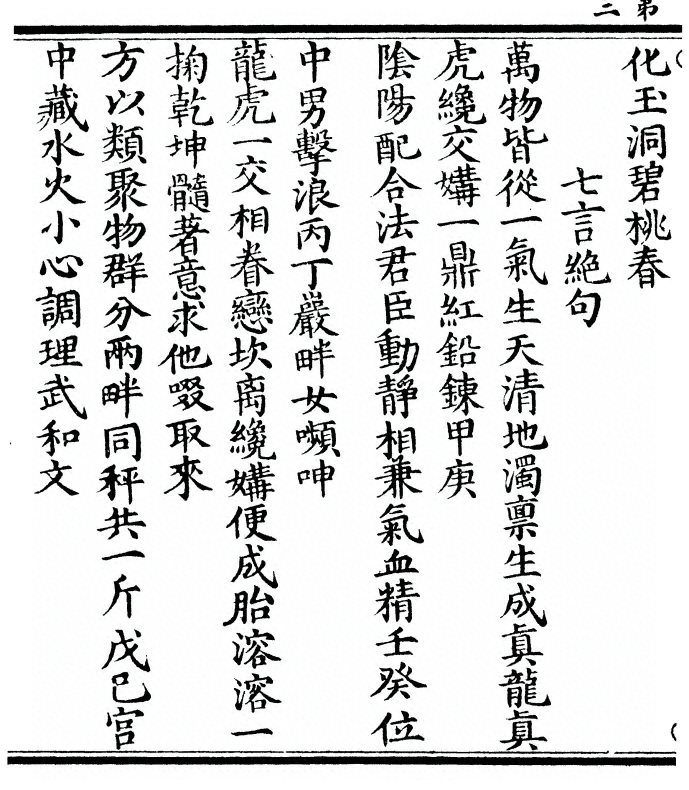 第二
化玉洞碧桃春
七言絕句
萬物皆從一氣生天清地濁禀生成眞龍眞
虎纔交媾一鼎紅鉛鍊甲庚
陰陽配合法君臣動靜相兼氣血精壬癸位
中男擊浪丙丁巖畔女嚬呻
龍虎一交相眷戀坎离纔媾便成胎溶溶一
掬乾坤髓著意求他啜取來
方以類聚物群分兩畔同秤共一斤戊己宫
中藏水火小心調理武和文